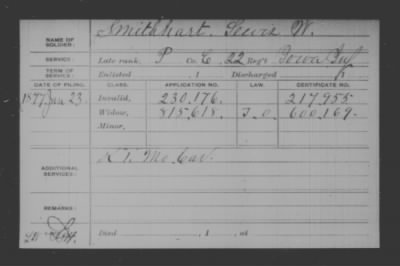 NAME OF SOLDIER: Smithhart, Lewis W.
SERVICE: Late rank, P Co. C, 22 Reg't Iowa Inf
TERM OF SERVICE: Enlisted , 1 Discharged
DATE OF FILING. CLASS. APPLICATION NO. LAW. CERTIFICATE NO.
1877 Jan 23. Invalid, 230,176. 217,955
Widow, 815,618. 600,169.
Minor,
ADDITIONAL SERVICES: Mo Cav.
REMARKS:
Died , 1 , at